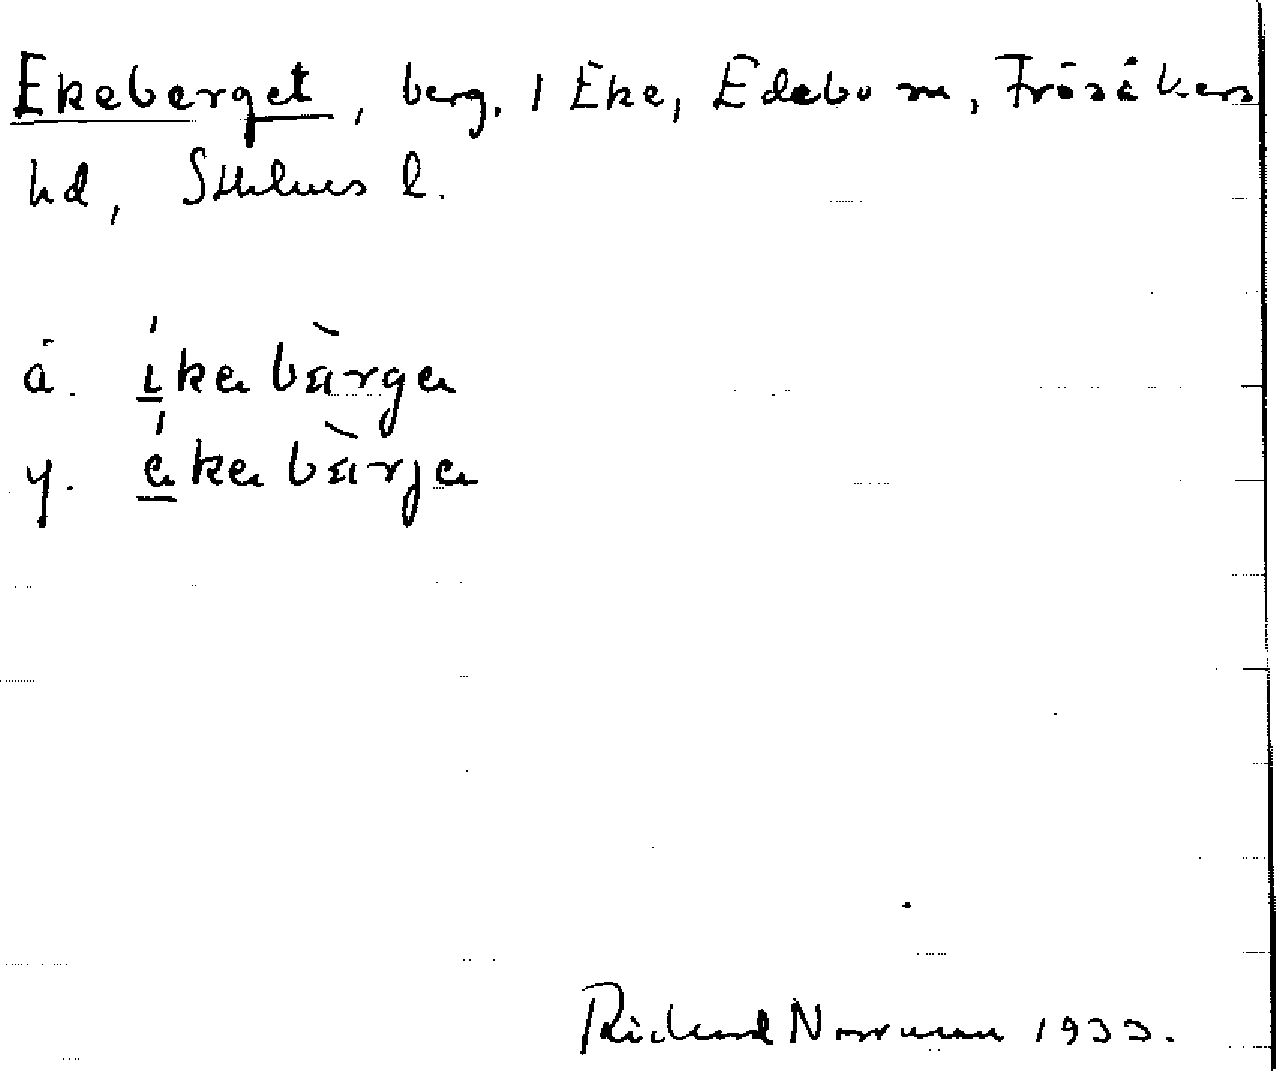 Ekeberget, berg, i Eke, Edebo sn, Frösåkers
hd, Sthlms l.
ä. ikebärge
y. ekebärje
Richard Norrman 1933.